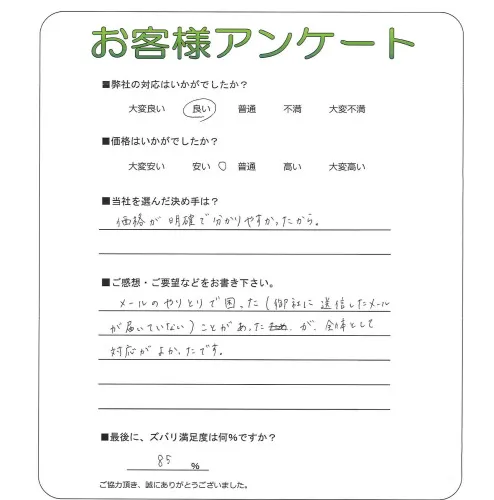 お客様アンケート
■弊社の対応はいかがでしたか？
大変良い 良い 普通 不満 大変不満
■価格はいかがでしたか？
大変安い 安い 普通 高い 大変高い
■当社を選んだ決め手は？
価格が明確で分かりやすかったから。
■ご感想・ご要望などをお書き下さい。
メールのやりとりで困った(御社に送信したメール
が届いていない)ことがあった が、全体として
対応がよかったです。
■最後に、ズバリ満足度は何％ですか？
85 %
ご協力頂き、誠にありがとうございました。